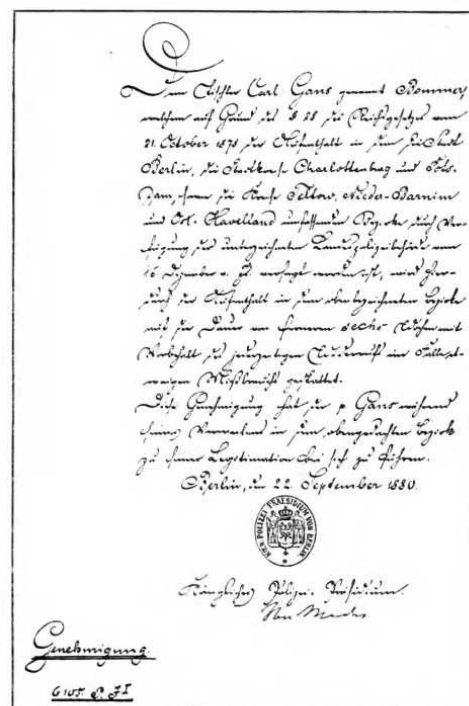 Dem Tischler Carl Gans genannt Bommer,
welchem auf Grund des § 28 des Reichsgesetzes vom
21. October 1878 der Aufenthalt in dem die Stadt
Berlin, die Stadtkreise Charlottenburg und Pots-
dam, sowie die Kreise Teltow, Nieder-Barnim
und Ost-Havelland umfassenden Bezirke durch Ver-
fügung der unterzeichneten Landespolizeibehörde vom
16 Dezember v. Js. versagt worden ist, wird hier-
durch der Aufenthalt in dem obenbezeichneten Bezirke
auf die Dauer von ferneren sechs Wochen mit
Vorbehalt des jederzeitigen Widerrufs im Falle et-
waigen Mißbrauchs gestattet.
Diese Genehmigung hat der p Gans während
seines Verweilens in dem obengedachten Bezirk
zu seiner Legitimation bei sich zu führen.
Berlin, den 22. September 1880.
KÖN. POLIZEI PRAESIDIUM VON BERLIN
Königliches Polizei-Präsidium.
Genehmigung.